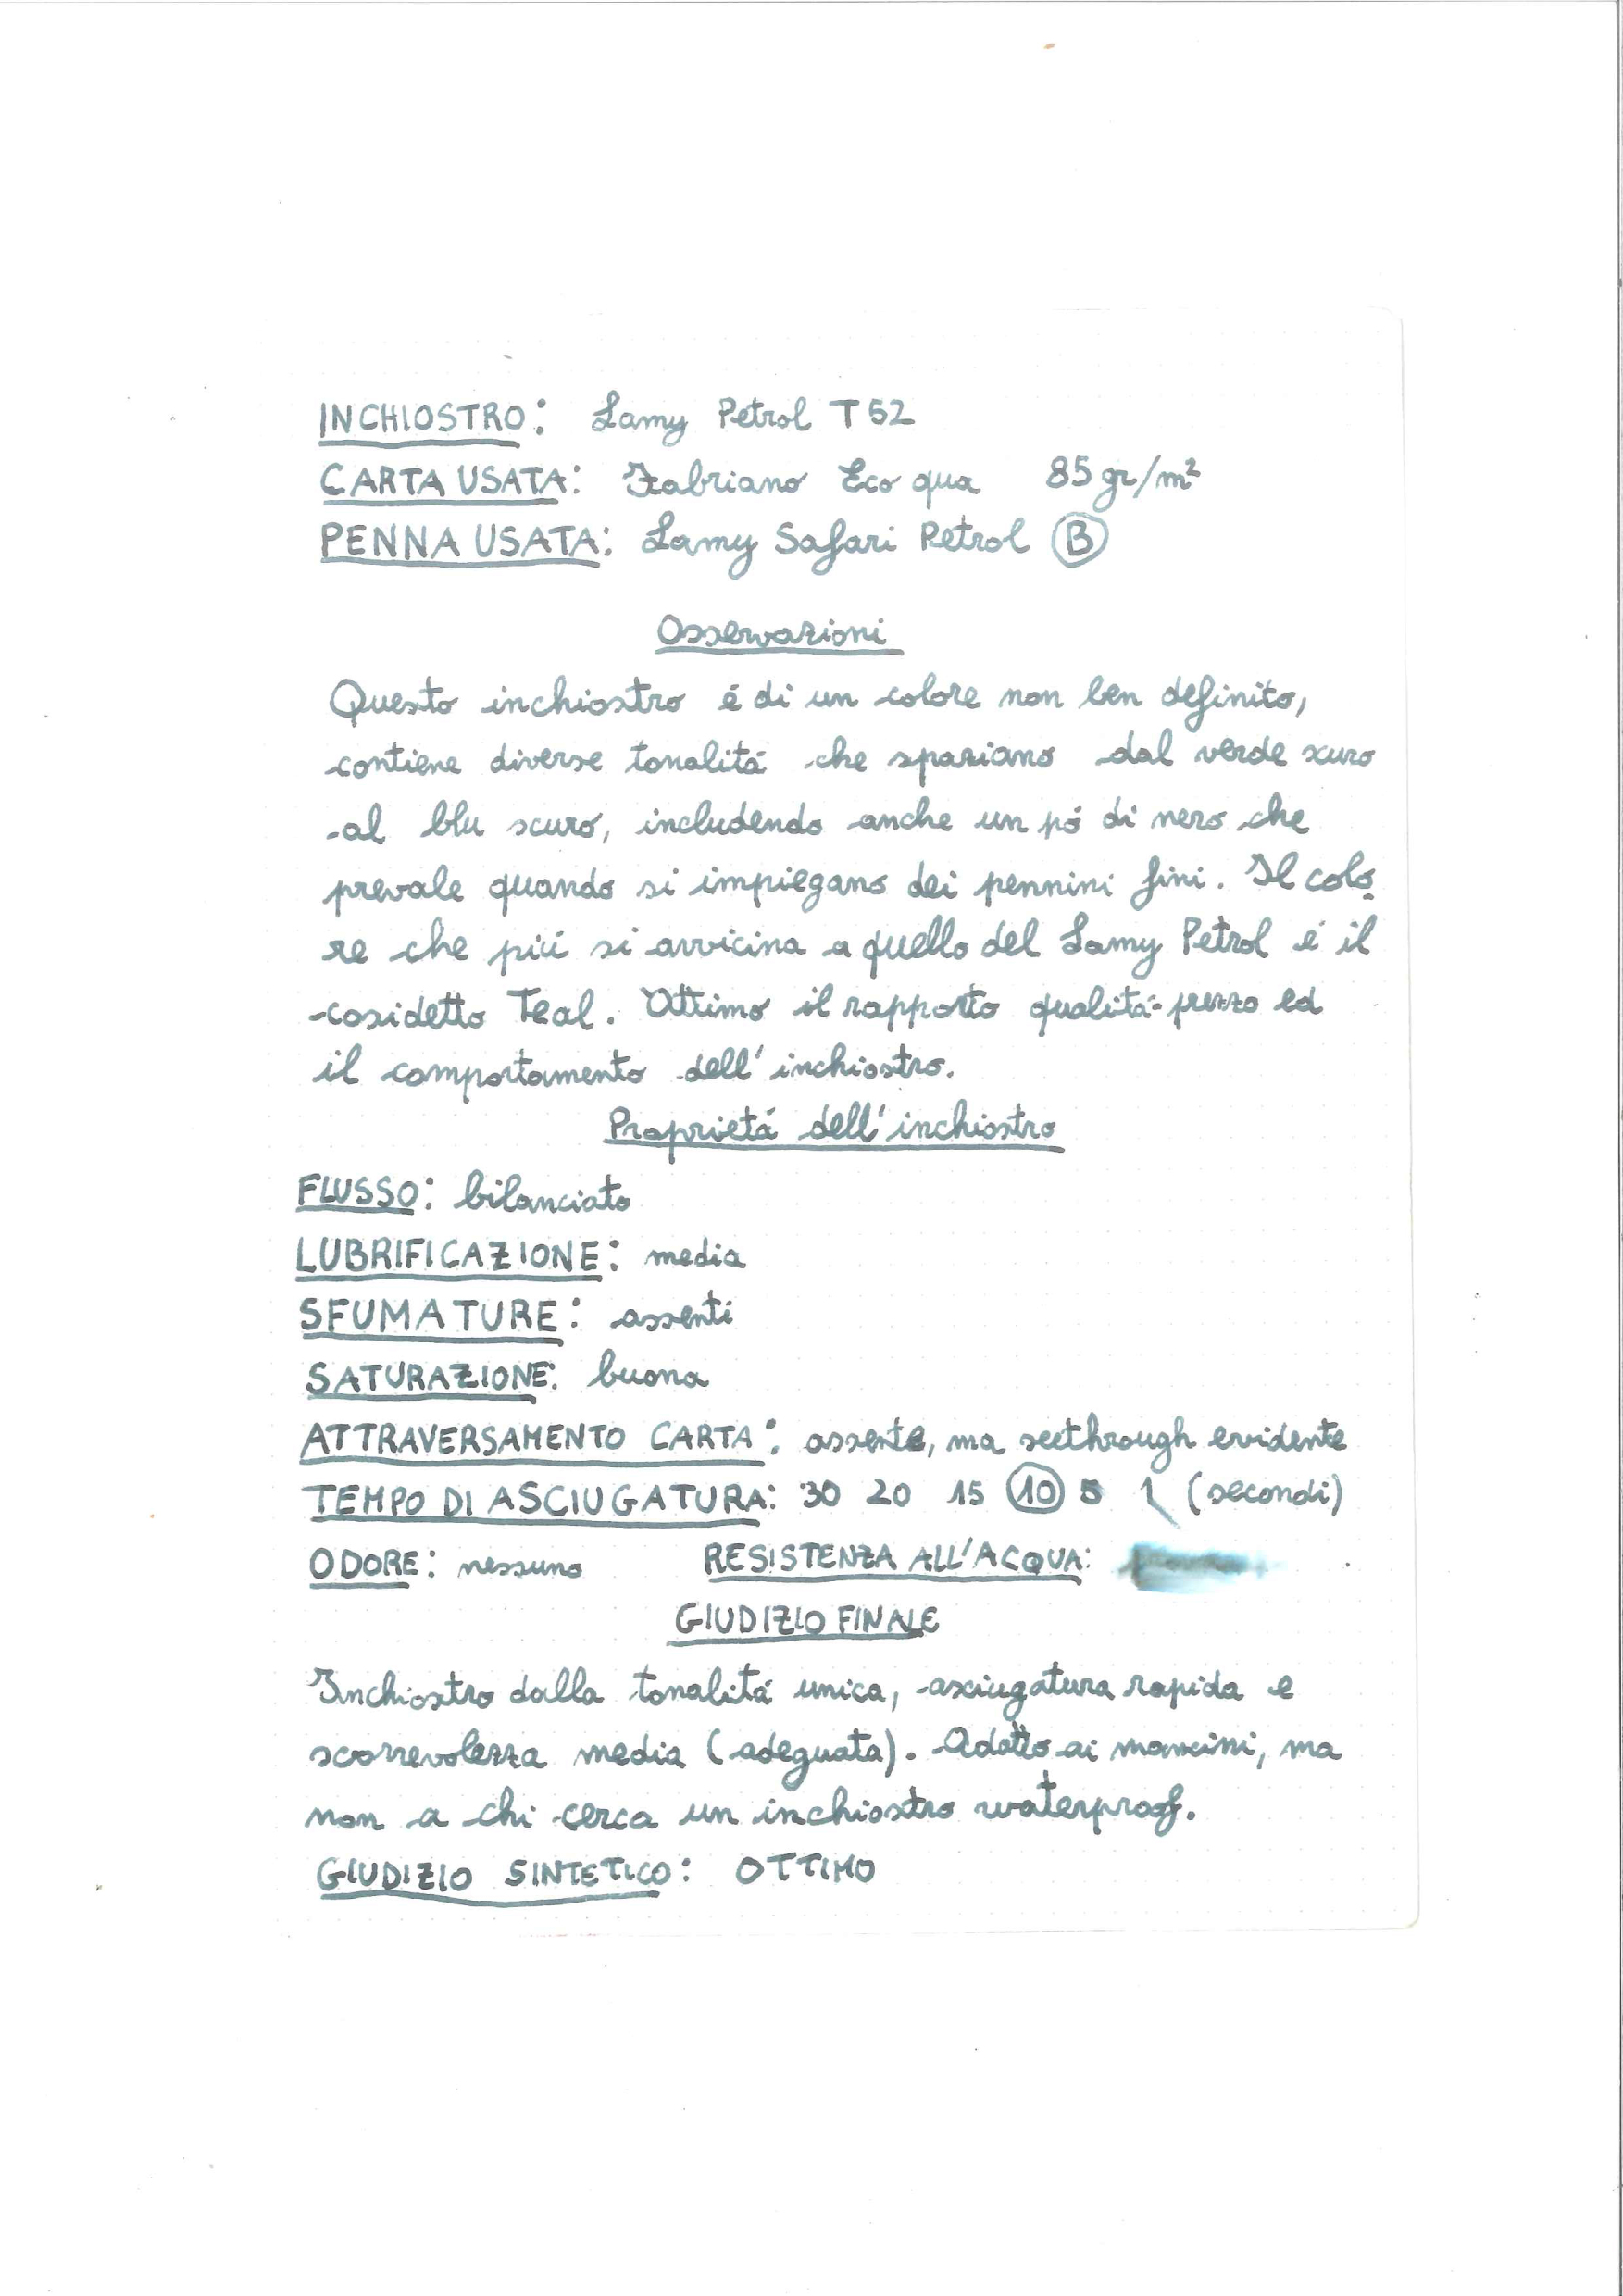 INCHIOSTRO: Lamy Petrol T52
CARTA USATA: Fabriano Eco qua 85 gr/m²
PENNA USATA: Lamy Safari Petrol B
Osservazioni
Questo inchiostro é di un colore non ben definito,
contiene diverse tonalitá che spaziano dal verde scuro
al blu scuro, includendo anche un pó di nero che
prevale quando si impiegano dei pennini fini. Il colo
re che piú si avvicina a quello del Lamy Petrol é il
cosidetto Teal. Ottimo il rapporto qualitá-prezzo ed
il comportamento dell'inchiostro.
Proprietá dell'inchiostro
FLUSSO: bilanciato
LUBRIFICAZIONE: media
SFUMATURE: assenti
SATURAZIONE: buona
ATTRAVERSAMENTO CARTA: assente, ma seethrough evidente
TEMPO DI ASCIUGATURA: 30 20 15 10 5 1 (secondi)
ODORE: nessuno RESISTENZA ALL'ACQUA:
GIUDIZIO FINALE
Inchiostro dalla tonalitá unica, asciugatura rapida e
scorrevolezza media (adeguata). Adatto ai mancini, ma
non a chi cerca un inchiostro waterproof.
GIUDIZIO SINTETICO: OTTIMO